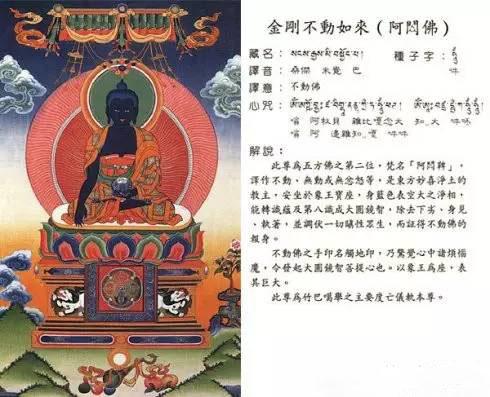 金剛不動如來（阿閦佛）
藏名：སངས་རྒྱས་མི་བསྐྱོད་པ། 種子字：
譯音：桑傑 米覺 巴 吽
譯意：不動佛
心咒：
嗡 阿 吽吽
解說：
此尊爲五方佛之第二位，梵名「阿閦鞞」，
譯作不動、無動或無忿怒等，是東方妙喜淨土的
教主，安坐於象王寶座，身藍色表空大之淨相，
能轉識蘊及第八識成大圓鏡智，除去下劣、身見
、執著，並調伏一切瞋性眾生，而証得不動佛的
報身。
不動佛之手印名觸地印，乃驚覺心中諸煩惱
魔，令發起大圓鏡智菩提心也。以象王爲座，表
其巨大。
此尊爲竹巴噶舉之主要度亡儀軌本尊。